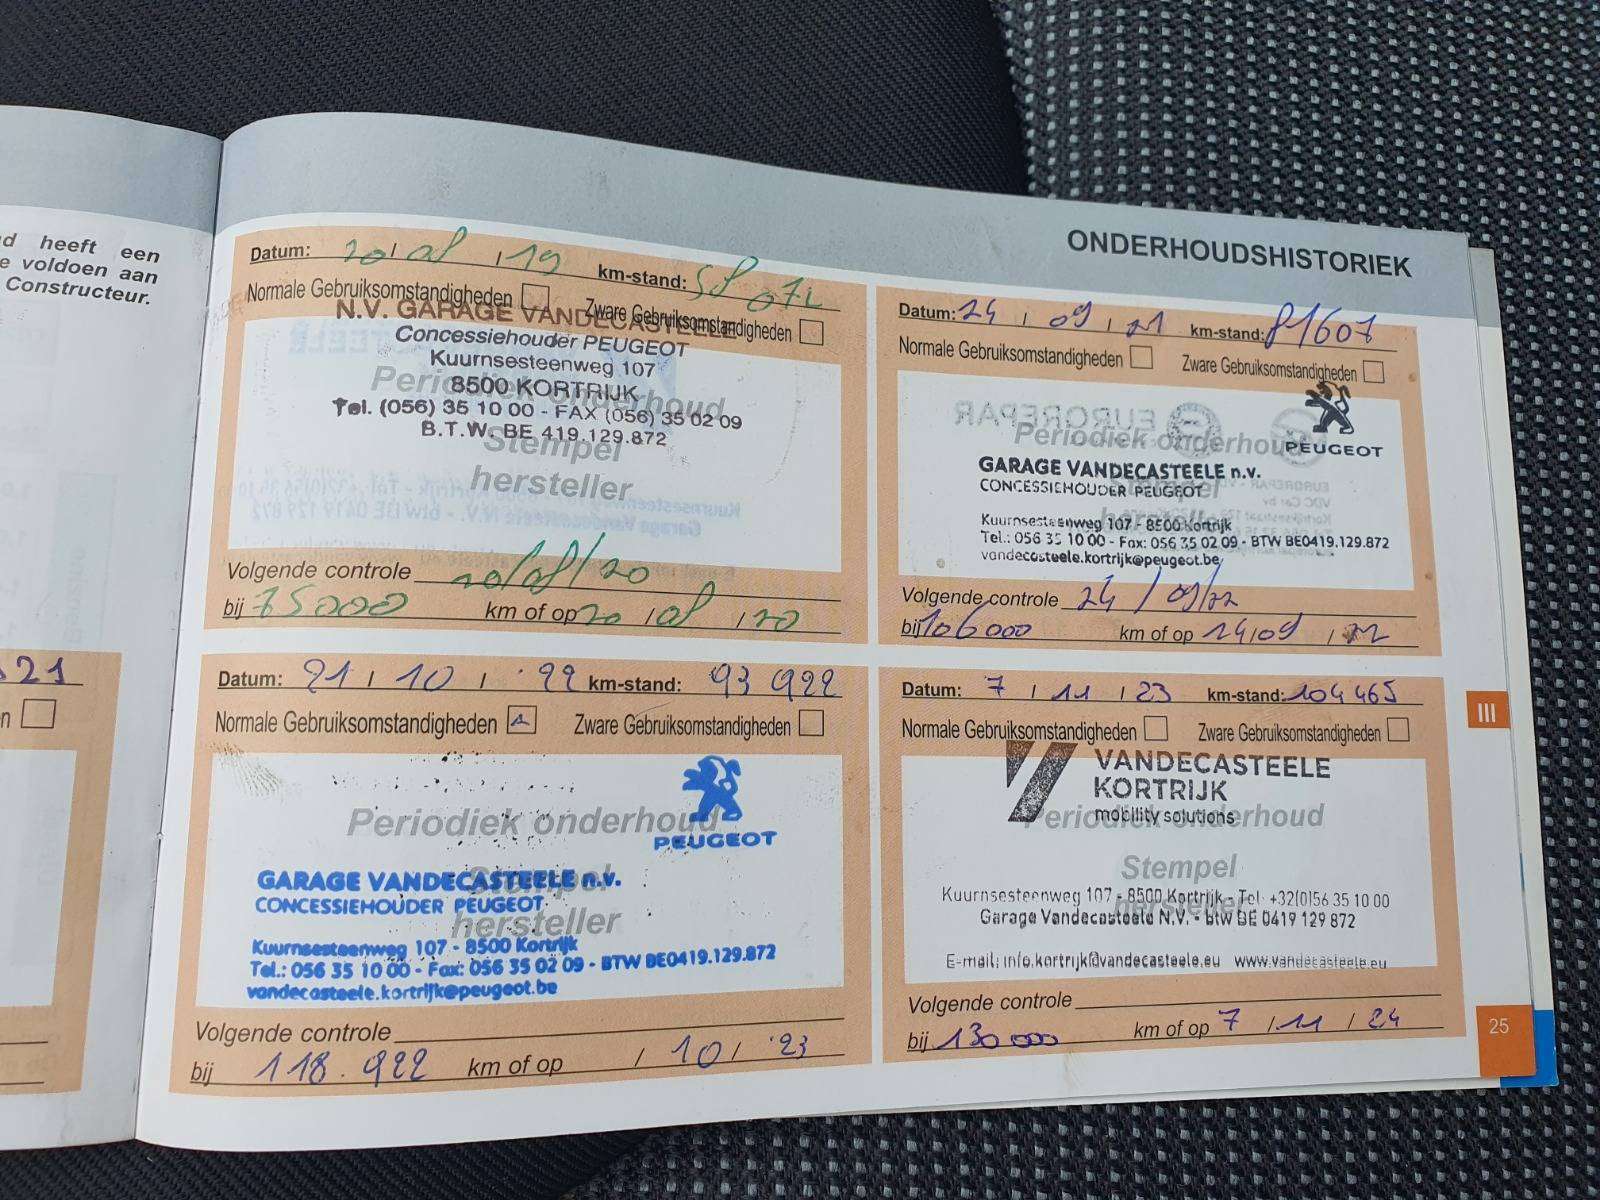 d heeft een
e voldoen aan
Constructeur.
321
n
ONDERHOUDSHISTORIEK
Datum: 20/08/19 km-stand:
Normale Gebruiksomstandigheden Zware Gebruiksomstandigheden
N.V. GARAGE VANDECASTEELE
Concessiehouder PEUGEOT
Kuurnsesteenweg 107
8500 KORTRIJK
Tel. (056) 35 10 00 - FAX (056) 35 02 09
B.T.W. BE 419.129.872
Periodiek onderhoud
Stempel
hersteller
Volgende controle 20/08/20
bij 75000 km of op 20/08/20
Datum: 24/09/21 km-stand: 81607
Normale Gebruiksomstandigheden Zware Gebruiksomstandigheden
PEUGEOT
Periodiek onderhoud
Stempel
hersteller
GARAGE VANDECASTEELE n.v.
CONCESSIEHOUDER PEUGEOT
Kuurnsesteenweg 107 - 8500 Kortrijk
Tel.: 056 35 10 00 - Fax: 056 35 02 09 - BTW BE0419.129.872
vandecasteele.kortrijk@peugeot.be
Volgende controle 24/09/22
bij 106000 km of op 24/09/22
Datum: 21/10/'22 km-stand: 93 922
Normale Gebruiksomstandigheden Zware Gebruiksomstandigheden
Periodiek onderhoud
PEUGEOT
Stempel
hersteller
GARAGE VANDECASTEELE n.v.
CONCESSIEHOUDER PEUGEOT
Kuurnsesteenweg 107 - 8500 Kortrijk
Tel.: 056 35 10 00 - Fax: 056 35 02 09 - BTW BE0419.129.872
vandecasteele.kortrijk@peugeot.be
Volgende controle
bij 118.922 km of op /10/'23
Datum: 7/11/23 km-stand: 104465
Normale Gebruiksomstandigheden Zware Gebruiksomstandigheden
VANDECASTEELE
KORTRIJK
mobility solutions
Periodiek onderhoud
Stempel
hersteller
Kuurnsesteenweg 107 - 8500 Kortrijk - Tel. +32(0)56 35 10 00
Garage Vandecasteele N.V. - btw BE 0419 129 872
E-mail: info.kortrijk@vandecasteele.eu www.vandecasteele.eu
Volgende controle
bij 130000 km of op 7/11/24
III
25